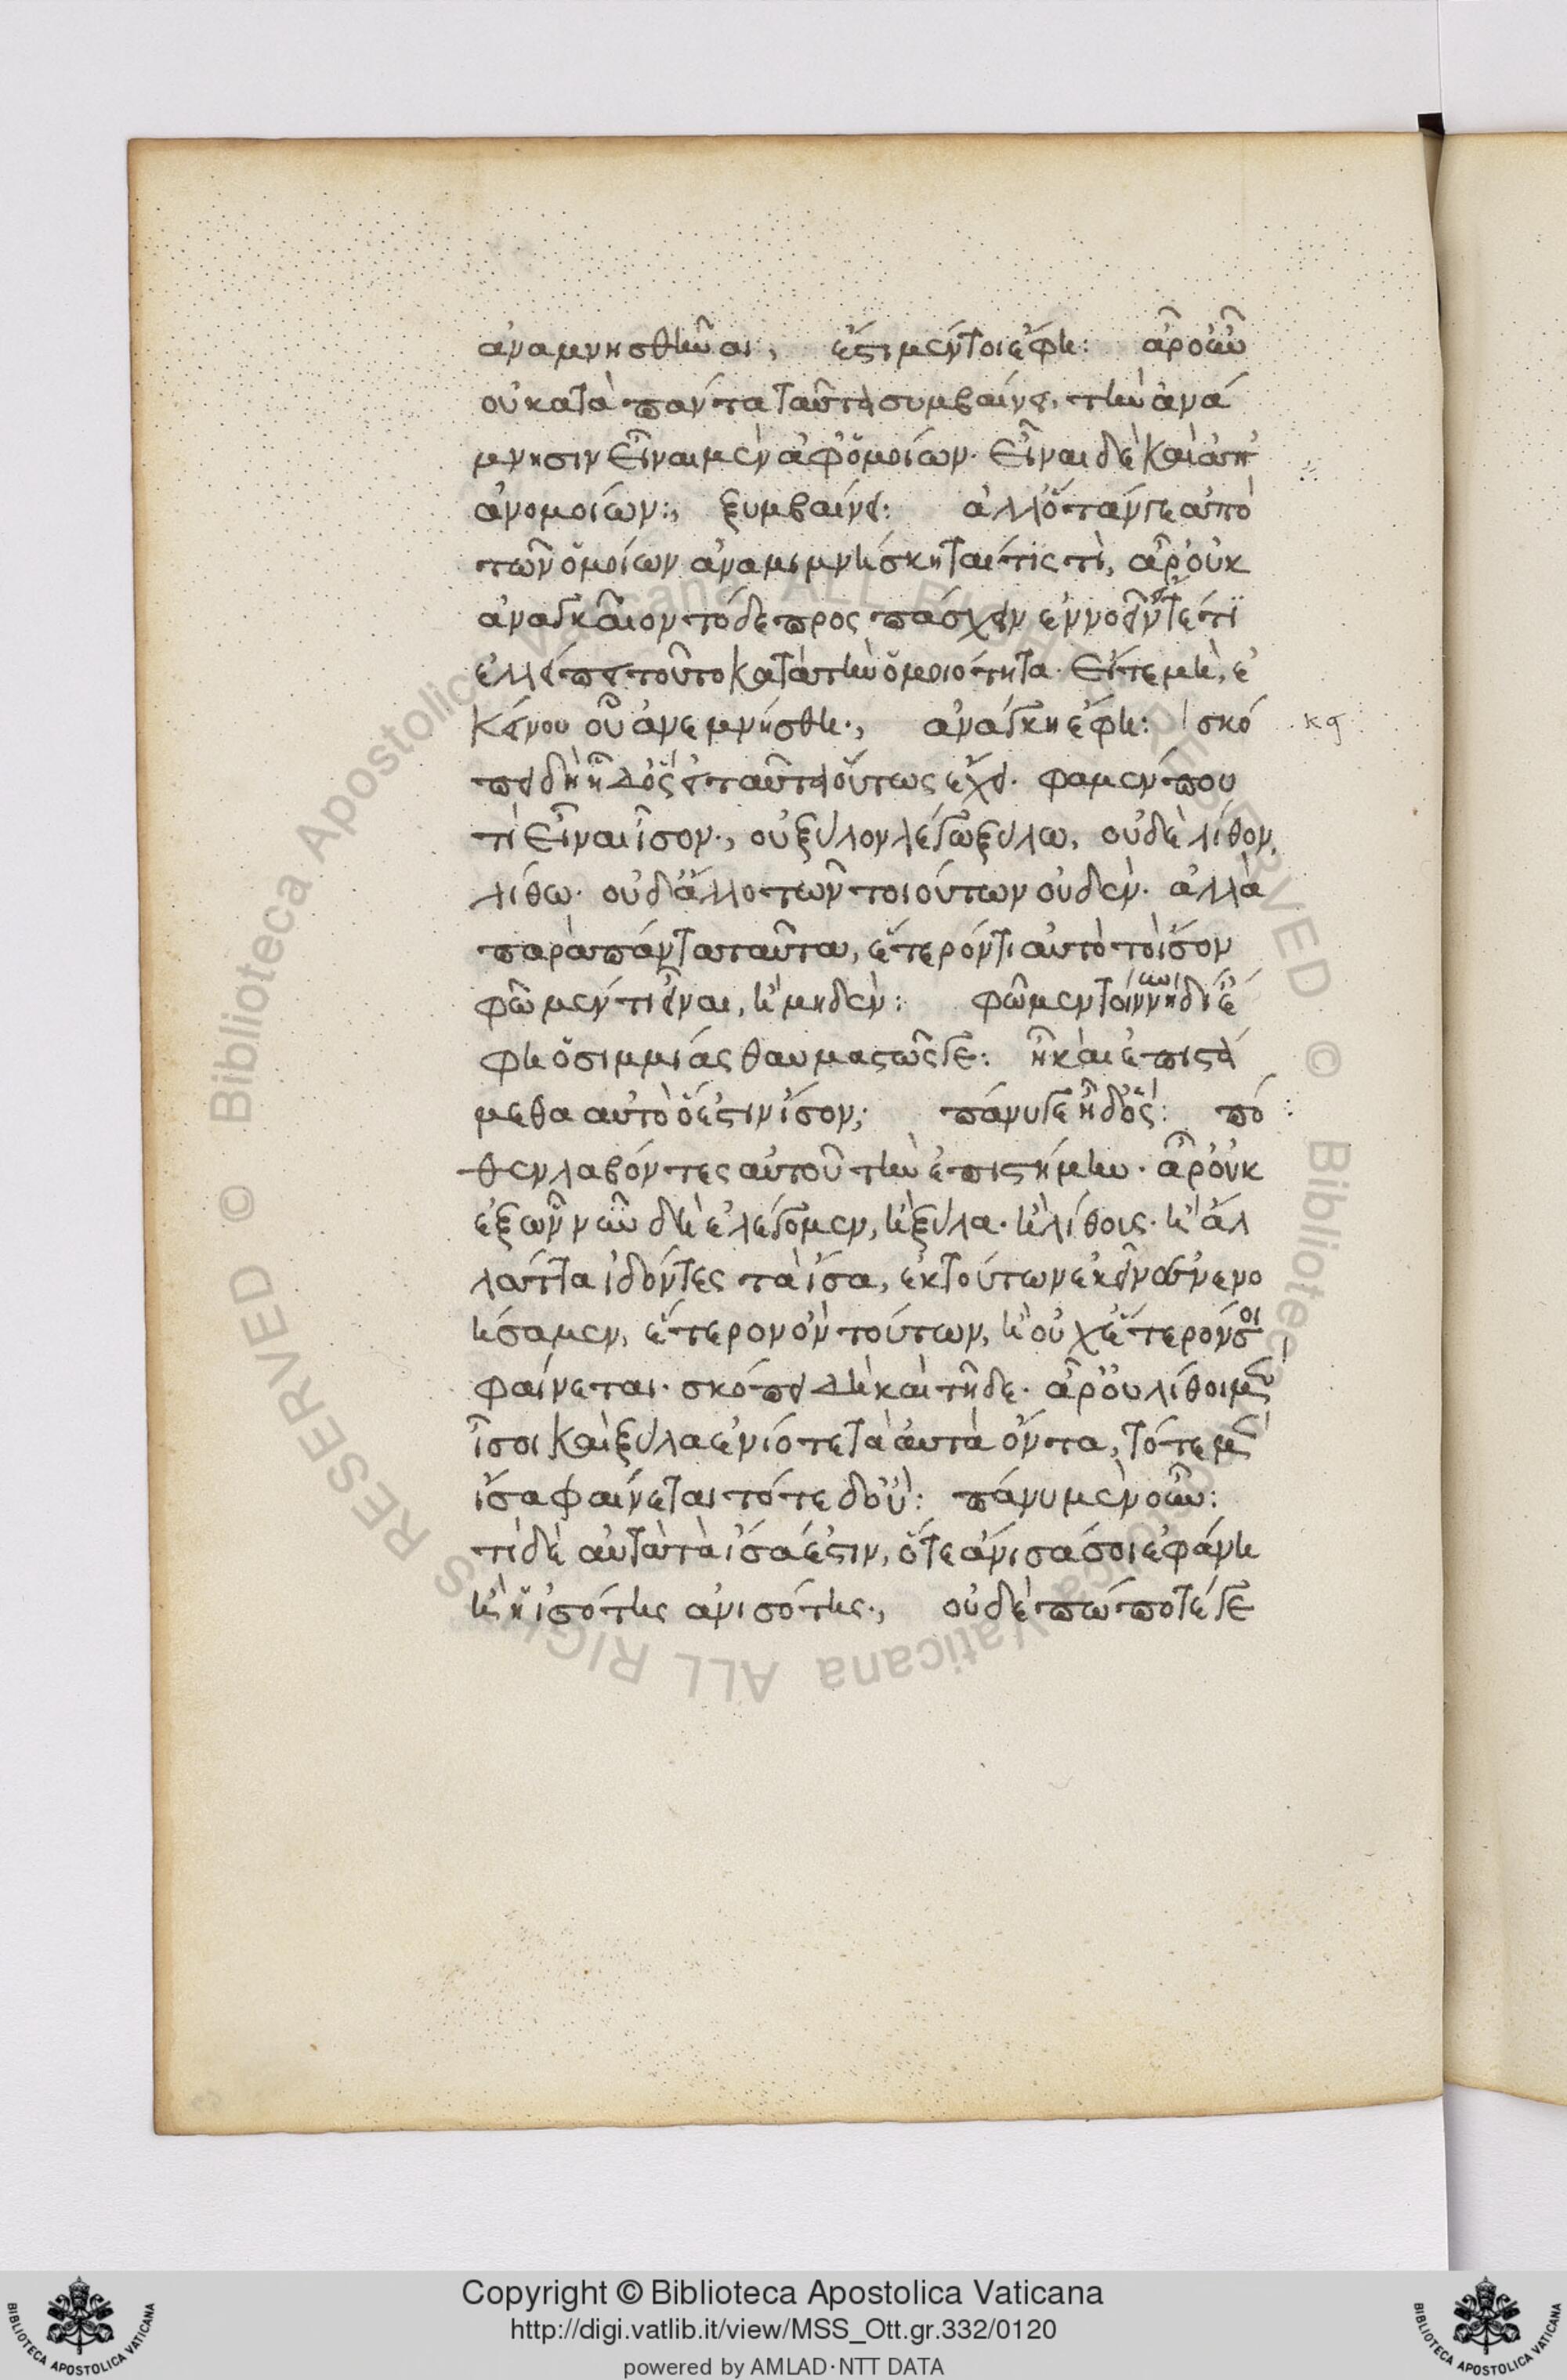 ἀναμνησθῆναι, ἔστι μέντοι ἔφη: ἆρ' οὖν
οὐ κατὰ πάντα ταῦτα συμβαίνει, τὴν ἀνά
μνησιν εἶναι μὲν ἀφ' ὁμοίων· εἶναι δὲ καὶ ἀπ'
ἀνομοίων:, ξυμβαίνει: ἀλλ' ὅταν γε ἀπὸ
τῶν ὁμοίων ἀναμιμνήσκηται τίς τι, ἆρ' οὐκ
ἀναγκαῖον τόδε προσπάσχειν ἐννοεῖν εἴτέ τι
ἐλλείπει τοῦτο κατὰ τὴν ὁμοιότητα. εἴτε μὴ, ἐ
κείνου οὗ ἀνεμνήσθη·, ἀνάγκη ἔφη: σκό
πει δὴ ἦ δ' ὃς εἰ ταῦτα οὕτως ἔχει. φαμέν που
τι εἶναι ἶσον·, οὐ ξύλον λέγω ξύλω, οὐδὲ λίθον
λίθω· οὐδ' ἄλλο τῶν τοιούτων οὐδέν· ἀλλὰ
παρὰ πάντα ταῦτα, ἕτερόν τι αὐτὸ τὸ ἴσον
φῶμέν τι εἶναι, ἢ μηδέν: φῶμεν τοίνυν νὴ δί' ἔ
φη ὁ σιμμίας θαυμαστῶς γε: ἦ καὶ ἐπιστά
μεθα αὐτὸ ὅ ἐστιν ἴσον; πάνυ γε ἦ δ' ὅς: πό
θεν λαβόντες αὐτοῦ τὴν ἐπιστήμην. ἆρ' οὐκ
ἐξ ὧν νῦν δὴ ἐλέγομεν, ἢ ξύλα· ἢ λίθους· ἢ ἄλ
λα ἄττα ἰδόντες τὰ ἴσα, ἐκ τούτων ἐκεῖνο ἐνενο
ήσαμεν, ἕτερον ὂν τούτων, ἢ οὐχ ἕτερόν σοι
φαίνεται· σκόπει δὴ καὶ τῆδε. ἆρ' οὐ λίθοι μὲν
ἶσοι καὶ ξύλα ἐνιότε τὰ αὐτὰ ὄντα, τότε μὲν
ἴσα φαίνεται τότε δ' οὔ: πάνυ μὲν οὖν:
τί δὲ αὐτὰ τὰ ἴσα ἔστιν, ὅτε ἄνισά σοι ἐφάνη
ἢ ἡ ἰσότης ἀνισότης·, οὐδὲ πώποτέ γε
Copyright © Biblioteca Apostolica Vaticana
http://digi.vatlib.it/view/MSS_Ott.gr.332/0120
powered by AMLAD·NTT DATA
© Biblioteca Apostolica Vaticana ALL RIGHTS RESERVED
BIBLIOTECA APOSTOLICA VATICANA
BIBLIOTECA APOSTOLICA VATICANA